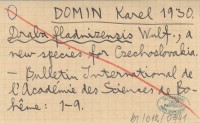 DOMIN Karel 1930.
Draba fladnizensis Wulf., a
new species for Czechoslovakia.
— Bulletin International de
l'Académie des Sciences de Bo-
hême: 1-9.